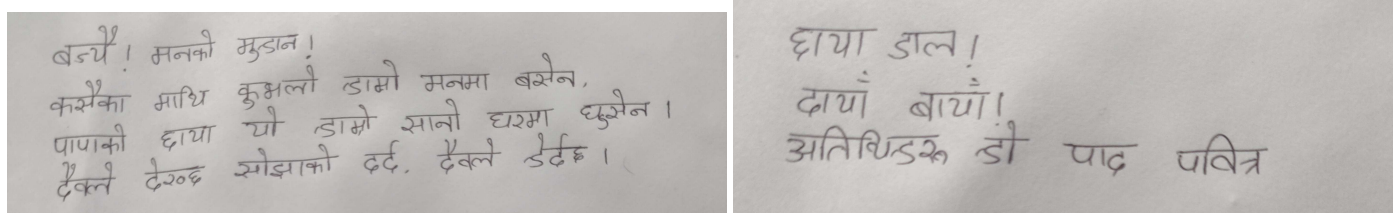 बज्यै! मनको मुडान!
कसैका माथि कुभलो हामो मनमा बसेन,
पापाको छाया यो हाम्रो सानो घरमा घुसेन।
दैवले देख्छ सोझाको दर्द, दैवले हेर्दछ।
छाया डाल!
दायाँ बायाँ!
अतिथिहरू हो पाद पवित्र